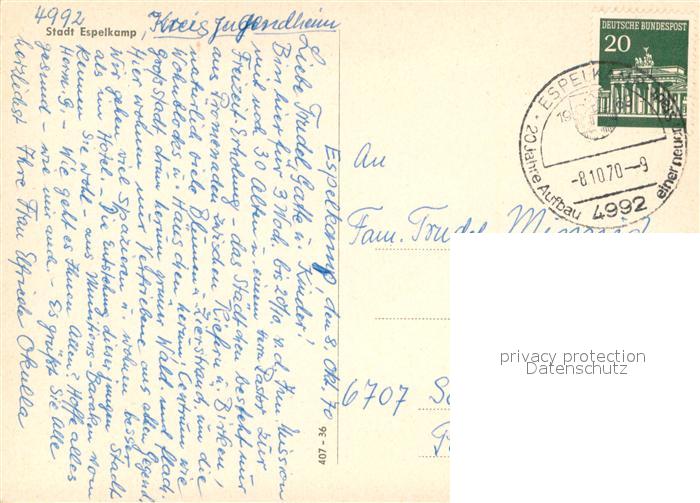 4992
Stadt Espelkamp, Kreis Jugendheim
Espelkamp, den 8. Okt. 70
Liebe Trudel, Gatte u. Kinder!
Bin hier für 3 Woch. bis 20/10 v. d. Inn. Mission
und rund 30 Alten u. einem Pastor zur
Freizeit Erholung - das Städtchen besteht nur
aus Promenaden zwischen Kiefern u. Birken,
natürlich viele Blumen u. Zierstrauch, um die
Wohnblocks u. Häuschen herum, Centrum wie
Großstadt drum herum grüner Wald und flach.
Hier wohnen nur Vertriebene aus allen Gegend.
Wir gehen viel spazieren u. wohnen besser
als im Hotel. - Die Entstehung dieser jungen Stadt
kennen Sie wohl - aus Munitions-Baraken vom
Herm. G. - Wie geht es Ihnen Allen? Hoffe alles
gesund - wie mir auch. - Es grüßt Sie Alle
herzlichst Ihre Frau Elfriede Okulla
407 - 36
An
Fam. Trudel
6707
DEUTSCHE BUNDESPOST
20
ESPELKAMP
-8.10.70-9
20 Jahre Aufbau einer neuen
4992
privacy protection
Datenschutz